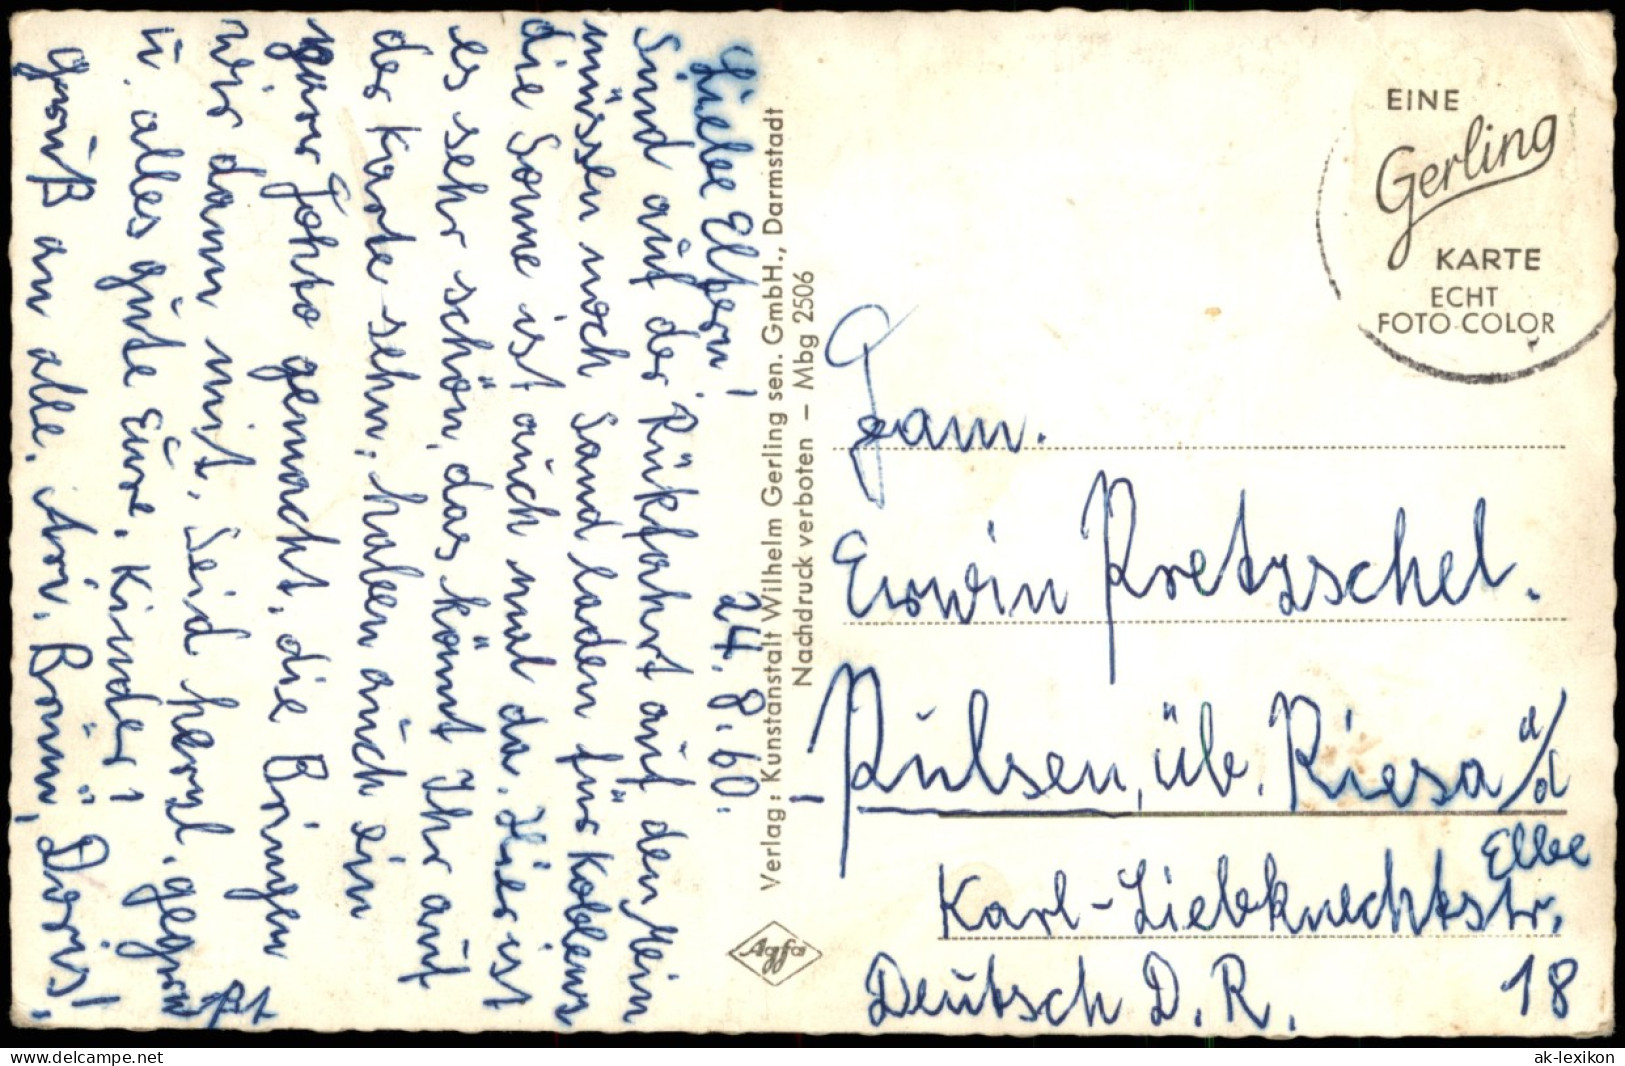 Liebe Eltern! 24.8.60.
Sind auf der Rükfahrt auf den Rein
müssen noch Sand laden für Koblens
die Sonne ist auch mal da. Hier ist
es sehr schön, das könnt Ihr auf
der Karte sehn, haben auch ein
Fohto gemacht, die Bringen
wir dann mit. Seid herzl. gegrüßt
u. alles gute Eure. Kinder!
Gruß an alle. Doris!
Verlag: Kunstanstalt Wilhelm Gerling sen. GmbH., Darmstadt
Nachdruck verboten – Mbg 2506
Agfa
EINE
Gerling
KARTE
ECHT
FOTO-COLOR
Fam.
Erwin Pretzschel.
Pulsen, üb. Riesa a/d
Elbe
Karl-Liebknechtstr.
18
Deutsch D. R.
www.delcampe.net
ak-lexikon